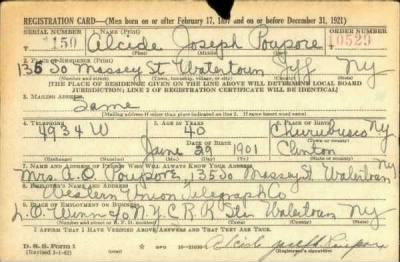 REGISTRATION CARD—(Men born on or after February 17, 1897 and on or before December 31, 1921)
SERIAL NUMBER 1. NAME (Print) ORDER NUMBER
T 150 Alcide Joseph Poupore 10529
(First) (Middle) (Last)
2. PLACE OF RESIDENCE (Print)
135 So Massey St Watertown Jeff NY
(Number and street) (Town, township, village, or city) (County) (State)
[THE PLACE OF RESIDENCE GIVEN ON THE LINE ABOVE WILL DETERMINE LOCAL BOARD
JURISDICTION; LINE 2 OF REGISTRATION CERTIFICATE WILL BE IDENTICAL]
3. MAILING ADDRESS
Same
[Mailing address if other than place indicated on line 2. If same insert word same]
4. TELEPHONE 5. AGE IN YEARS 6. PLACE OF BIRTH
4934 W 40 Churubusco NY
DATE OF BIRTH (Town or county)
June 29 1901 Clinton
(Exchange) (Number) (Mo.) (Day) (Yr.) (State or country)
7. NAME AND ADDRESS OF PERSON WHO WILL ALWAYS KNOW YOUR ADDRESS
Mrs. A. O. Poupore, 135 So Massey St Watertown NY
8. EMPLOYER'S NAME AND ADDRESS
Western Union Telegraph Co
9. PLACE OF EMPLOYMENT OR BUSINESS
N.Y.C.R.R. Sta Watertown NY
(Number and street or R. F. D. number) (Town) (County) (State)
I AFFIRM THAT I HAVE VERIFIED ABOVE ANSWERS AND THAT THEY ARE TRUE.
D. S. S. Form 1
(Revised 1-1-42) GPO Alcide Joseph Poupore
(Registrant's signature)